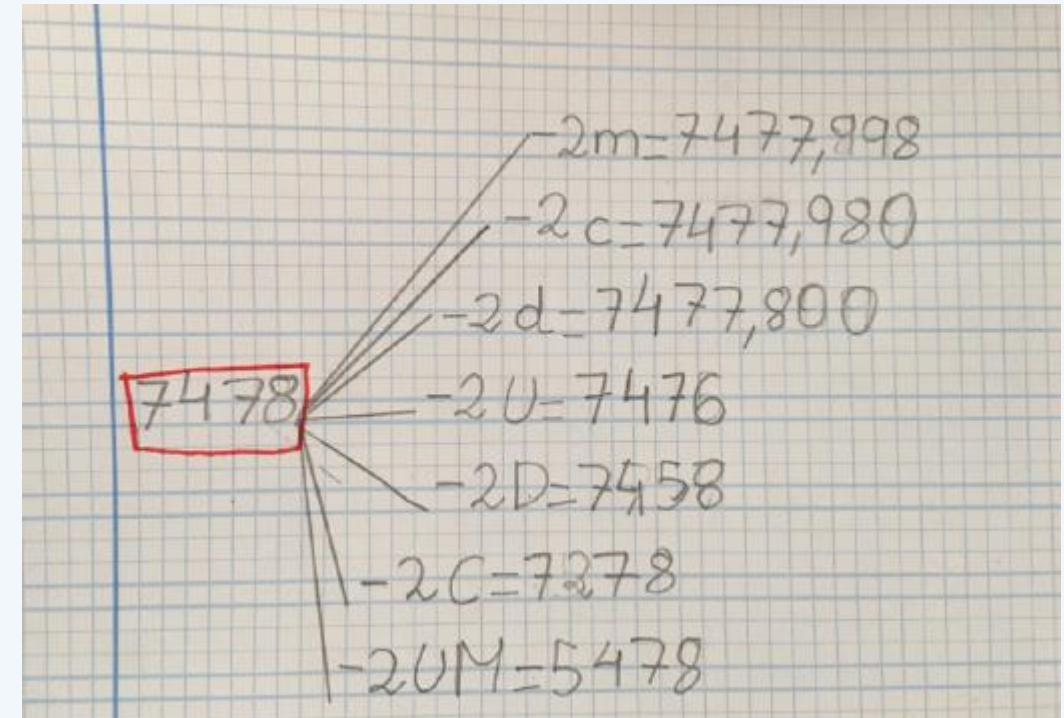 -2m=7477,998
-2c=7477,980
-2d=7477,800
7478
-2U=7476
-2D=7458
-2C=7278
-2UM=5478